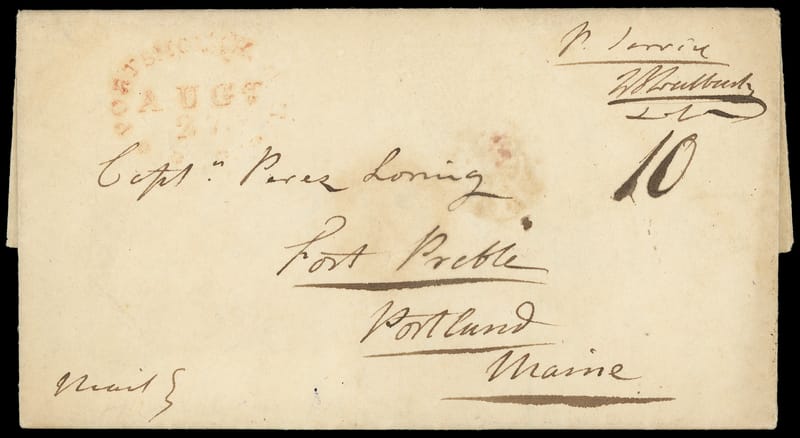 PORTSMOUTH
AUGT
27
P. Service
10
Captn. Perez Loring
Fort Preble
Portland
Maine
Mail